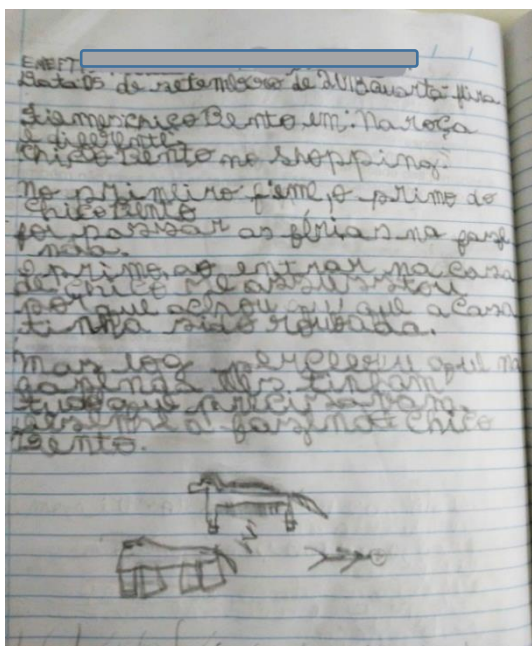 EMEF
Data 05 de setembro de 2018 quarta-feira
Fieme: Chico Bento em: Na roça
é diferente
Chico Bento no shopping.
No primeiro fieme, o primo do
Chico Bento
foi passar as férias na faze
nda.
O primo, ao entrar na casa
de Chico se assustou
por que achou que a casa
tinha sido roubada.
Mas log perceberu que na
eles tinham
tudo que precisavam
fazenda Chico
Bento.